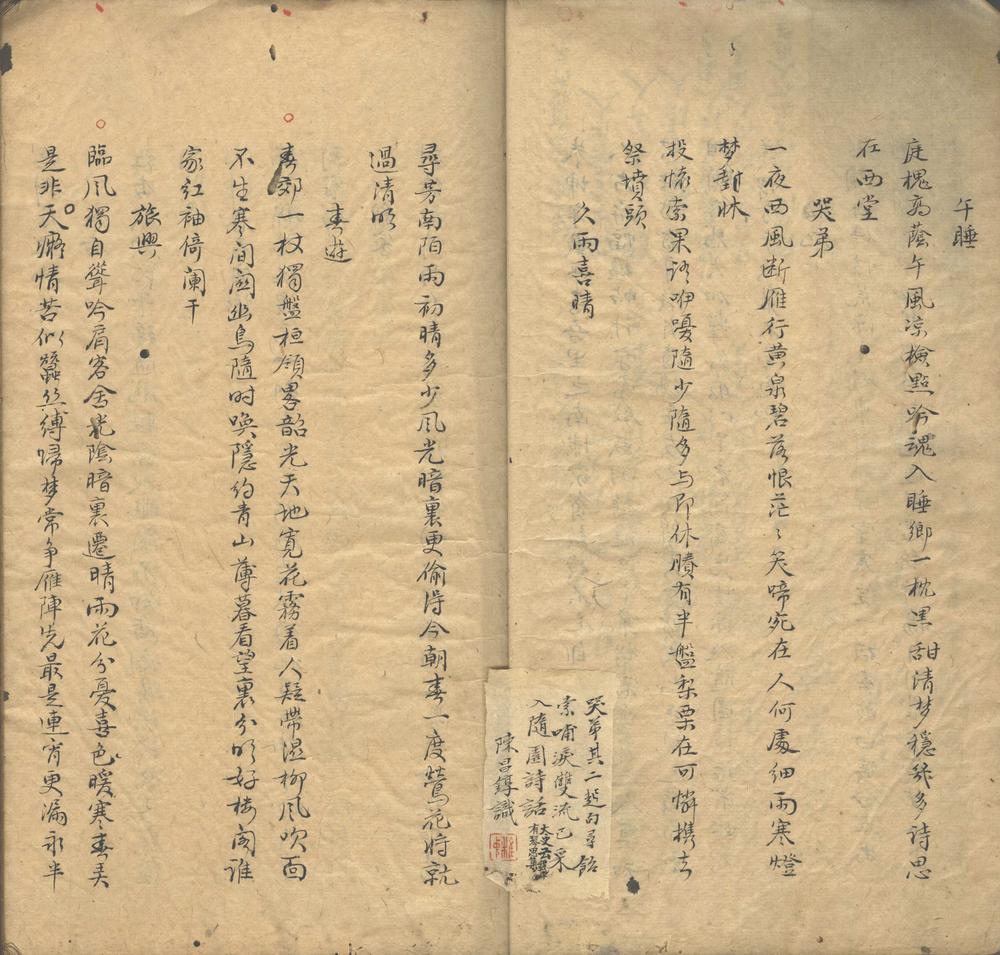 午睡
庭槐高蔭午風凉檢點吟魂入睡鄉一枕黑甜清梦穩許多詩思
在西堂
哭弟
一夜西風断雁行黄泉碧落恨茫〻笑啼宛在人何處细雨寒燈
梦對牀
投懐索果語咿嚘隨少隨多与即休賸有半盤梨栗在可憐携去
祭墳頭
久雨喜晴
尋芳南陌雨初晴多少风光暗裏更偷得今朝春一度鶯花將就
過清明
春遊
春郊一杖獨盤桓領畧韶光天地寛花霧着人疑帶濕柳风吹面
不生寒间関幽鸟隨时唤隱约青山薄暮看望裏分明好楼阁谁
家红袖倚阑干
旅興
臨风獨自聳吟肩客舍光陰暗裏遷晴雨花分憂喜色暖寒春弄
是非天癡情苦似蠶丝縛帰梦常争雁陣先最是連宵更漏永半
哭弟其二起句尋飴
索哺淚雙流已采
入隨園詩話
陳昌錞識